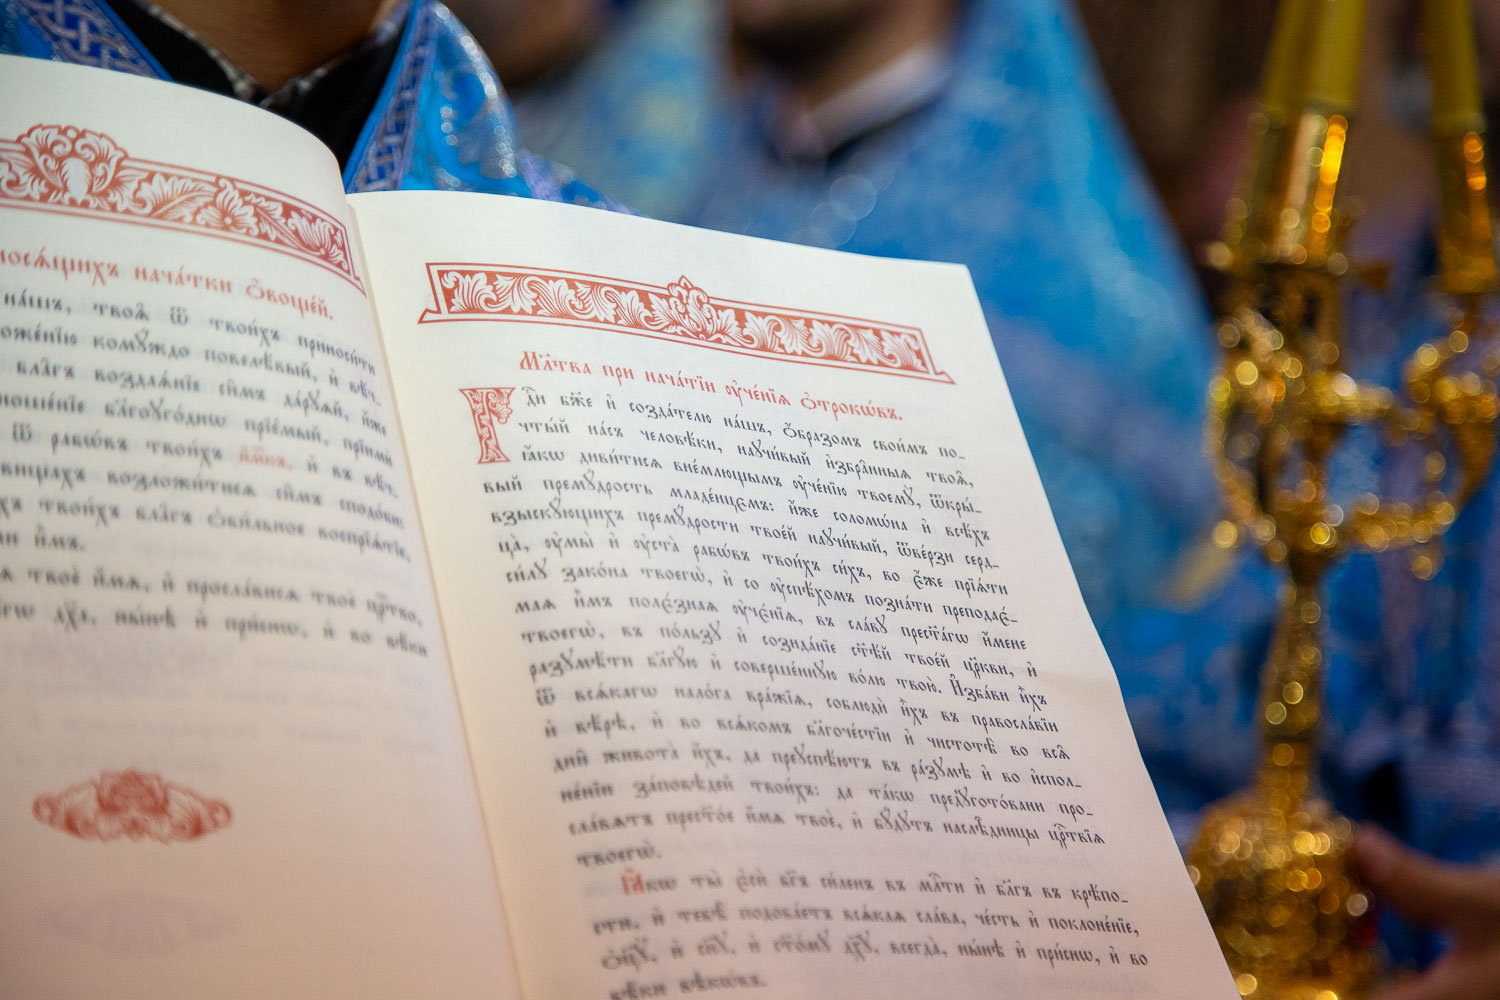 носѧ́щихъ нача́тки ѻ҆воще́й.
на́шъ, твоѧ̑ ѿ твои́хъ приноси́ти
ложе́нїю комꙋ́ждо повелѣ́вый, и҆ вѣ́ч‑
бл҃гъ воздаѧ́нїе си̑мъ да́рꙋѧй, и҆́же
ношє́нїе бл҃гоꙋго́днѡ прїе́мый, прїимѝ
ѿ рабѡ́въ твои́хъ и҆́м҃къ, и҆ въ вѣ́ч‑
вищахъ возложи́тисѧ си̑мъ сподо́би:
твои́хъ бл҃гъ ѻ҆би́льное воспрїѧ́тїе,
и҆̀мъ.
твоѐ и҆́мѧ, и҆ просла́висѧ твоѐ црⷭ҇тво,
дх҃а, ны́нѣ и҆ при́снѡ, и҆ во вѣ́ки
Мл҃тва при нача́тїи ᲂу҆че́нїѧ ѻ҆трокѡ́въ.
Гдⷭ҇и бж҃е и҆ созда́телю на́шъ, ѻ҆́бразомъ свои́мъ по‑
чты́й на́съ человѣ́ки, наꙋчи́вый и҆збра̑нныѧ твоѧ̑,
ꙗ҆́кѡ диви́тисѧ вне́млющымъ ᲂу҆че́нїю твоемꙋ̀, ѿкры́‑
вый премꙋ́дрость младе́нцємъ: и҆́же соломѡ́на и҆ всѣ́хъ
взыскꙋ́ющихъ премꙋ́дрости твоеѧ̀ наꙋчи́вый, ѿве́рзи серд‑
ца̀, ᲂу҆мы̀ и҆ ᲂу҆ста̀ рабѡ́въ твои́хъ си́хъ, во є҆́же прїѧ́ти
си́лꙋ зако́на твоегѡ̀, и҆ со ᲂу҆спѣ́хомъ позна́ти преподає́‑
маѧ и҆̀мъ полє́знаѧ ᲂу҆чє́нїѧ, въ сла́вꙋ прест҃а́гѡ и҆́мене
твоегѡ̀, въ по́льзꙋ и҆ созида́нїе ст҃ѣ́й твое́й цр҃кви, и҆
разꙋмѣ́ти бл҃гꙋ́ю и҆ соверше́ннꙋю во́лю твою̀. И҆зба́ви и҆̀хъ
ѿ всѧ́кагѡ нало́га вра́жїѧ, соблюдѝ и҆̀хъ въ правосла́вїи
и҆ вѣ́рѣ, и҆ во всѧ́комъ бл҃гоче́стїи и҆ чистотѣ̀ во всѧ̑
дни̑ живота̀ и҆́хъ, да преꙋспѣ́ютъ въ ра́зꙋмѣ и҆ во и҆спол‑
не́нїи за́повѣдей твои́хъ: да та́кѡ предꙋгото́влени про‑
сла́вѧтъ прест҃о́е и҆́мѧ твоѐ, и҆ бꙋ́дꙋтъ наслѣ́дницы црⷭ҇твїѧ
твоегѡ̀.
Ꙗ҆́кѡ ты̀ є҆сѝ бг҃ъ си́ленъ въ млⷭ҇ти и҆ бл҃гъ въ крѣ́по‑
сти, и҆ тебѣ̀ подоба́етъ всѧ́каѧ сла́ва, че́сть и҆ поклоне́нїе,
ѻ҆ц҃ꙋ̀, и҆ сн҃ꙋ, и҆ ст҃о́мꙋ дх҃ꙋ, всегда̀, ны́нѣ и҆ при́снѡ, и҆ во
вѣ́ки вѣкѡ́въ.